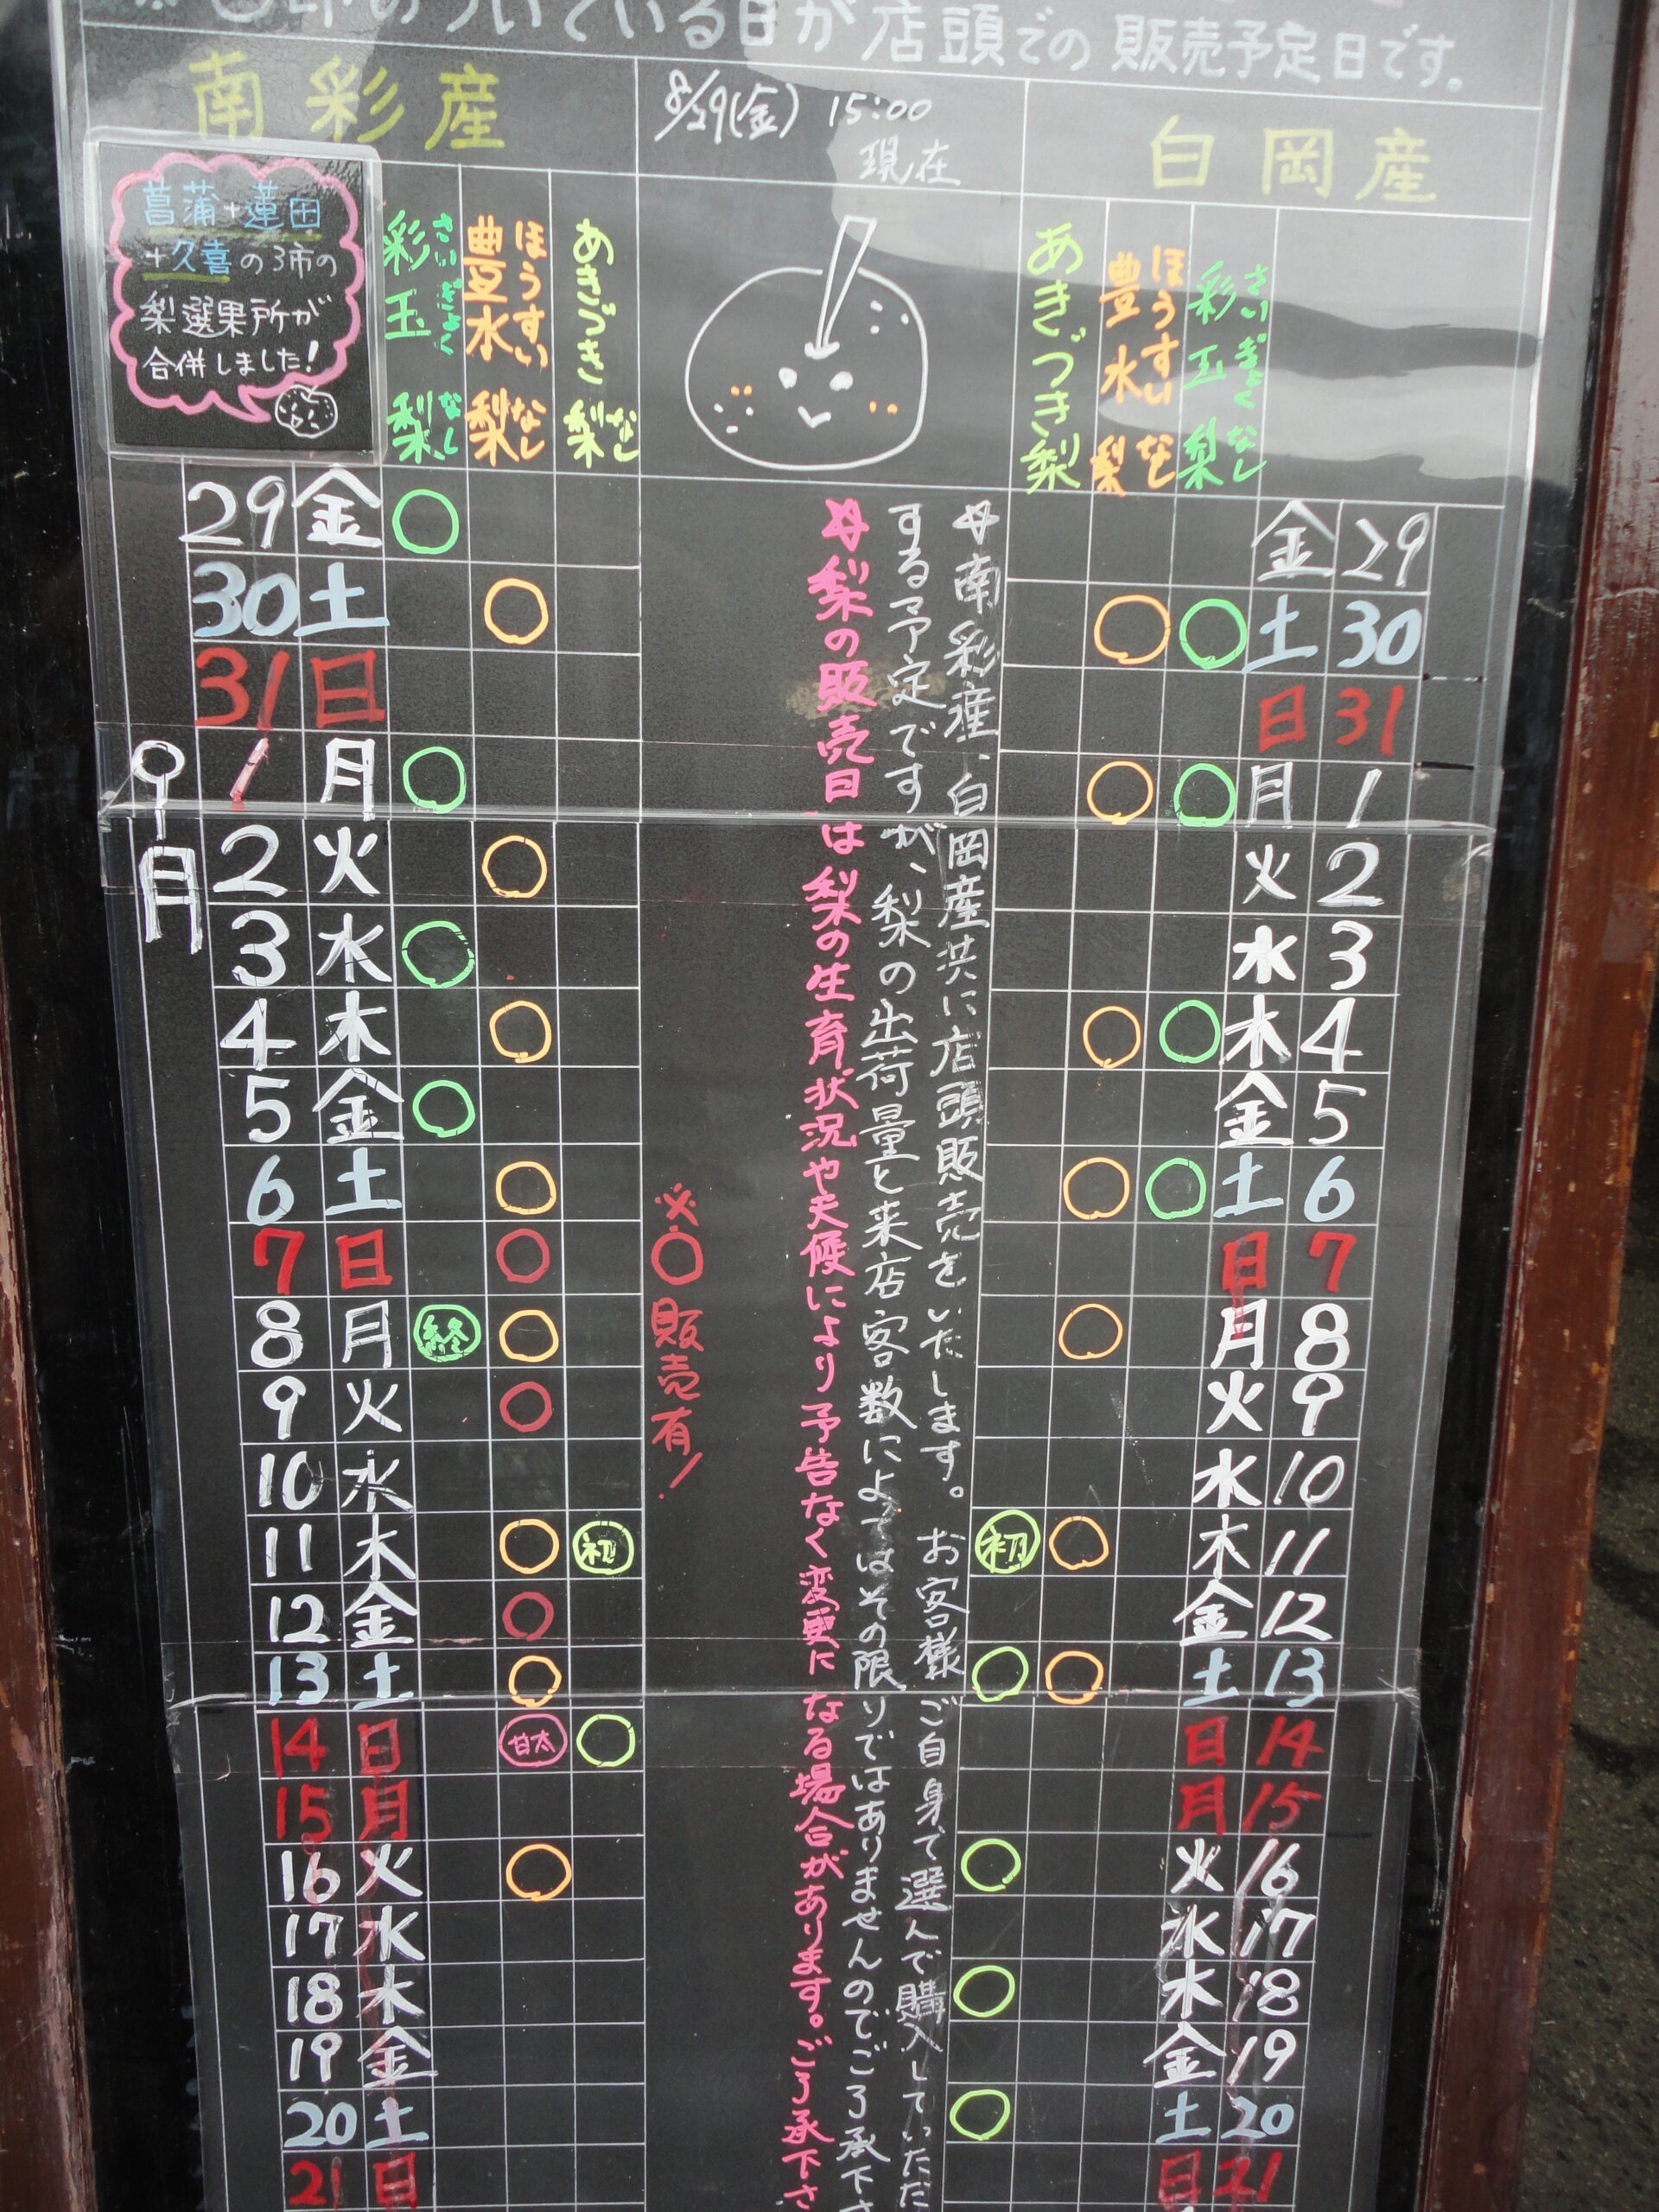 のついている日が店頭での販売予定日です。
南彩産
8/29(金) 15:00
現在
白岡産
菖蒲+蓮田
+久喜の3市の
梨選果所が
合併しました!
彩玉梨 さいぎょくなし
豊水梨 ほうすいなし
あきづき梨 なし
あきづき梨
豊水梨 ほうすいなし
彩玉梨 さいぎょくなし
29 金 ○
30 土 ○
31 日
9月
1 月 ○
2 火 ○
3 水 ○
4 木 ○
5 金 ○
6 土 ○
7 日 ○
8 月 終 ○
9 火 ○
10 水
11 木 ○ 初
12 金 ○
13 土 ○
14 日 甘太 ○
15 月
16 火 ○
17 水
18 木
19 金
20 土
21 日
※○販売有!
☆南彩産、白岡産共に店頭販売をいたします。お客様ご自身で選んで購入していただ
する予定ですが、梨の出荷量と来店客数によってはその限りではありませんのでご了承下さ
☆梨の販売日は梨の生育状況や天候により予告なく変更になる場合があります。ご了承下さ
金 29
○ ○ 土 30
日 31
○ ○ 月 1
火 2
水 3
○ ○ 木 4
金 5
○ ○ 土 6
日 7
○ 月 8
火 9
水 10
初 ○ 木 11
金 12
○ ○ 土 13
日 14
月 15
○ 火 16
水 17
○ 木 18
金 19
○ 土 20
日 21